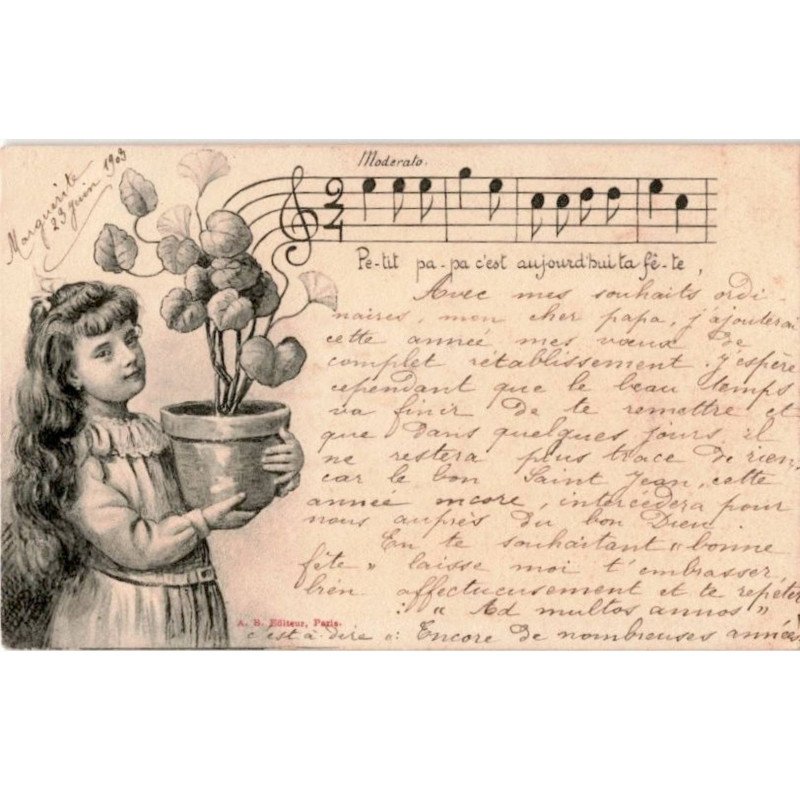 Marguerite
23 juin 1903
Moderato.
2
4
Pe-tit pa-pa c'est aujourd'hui ta fê-te
Avec mes souhaits ordi
naires, mon cher papa, j'ajouterai
cette année mes vœux de
complet rétablissement. J'espère
cependant que le beau temps
va finir de te remettre et
que dans quelques jours il
ne restera plus trace de rien,
car le bon Saint Jean, cette
année encore, intercédera pour
nous auprès du bon Dieu
En te souhaitant « bonne
fête » laisse moi t'embrasser
bien affectueusement et te répéter
: " Ad multos annos "
c'est à dire ": Encore de nombreuses années
A. B. Editeur, Paris.